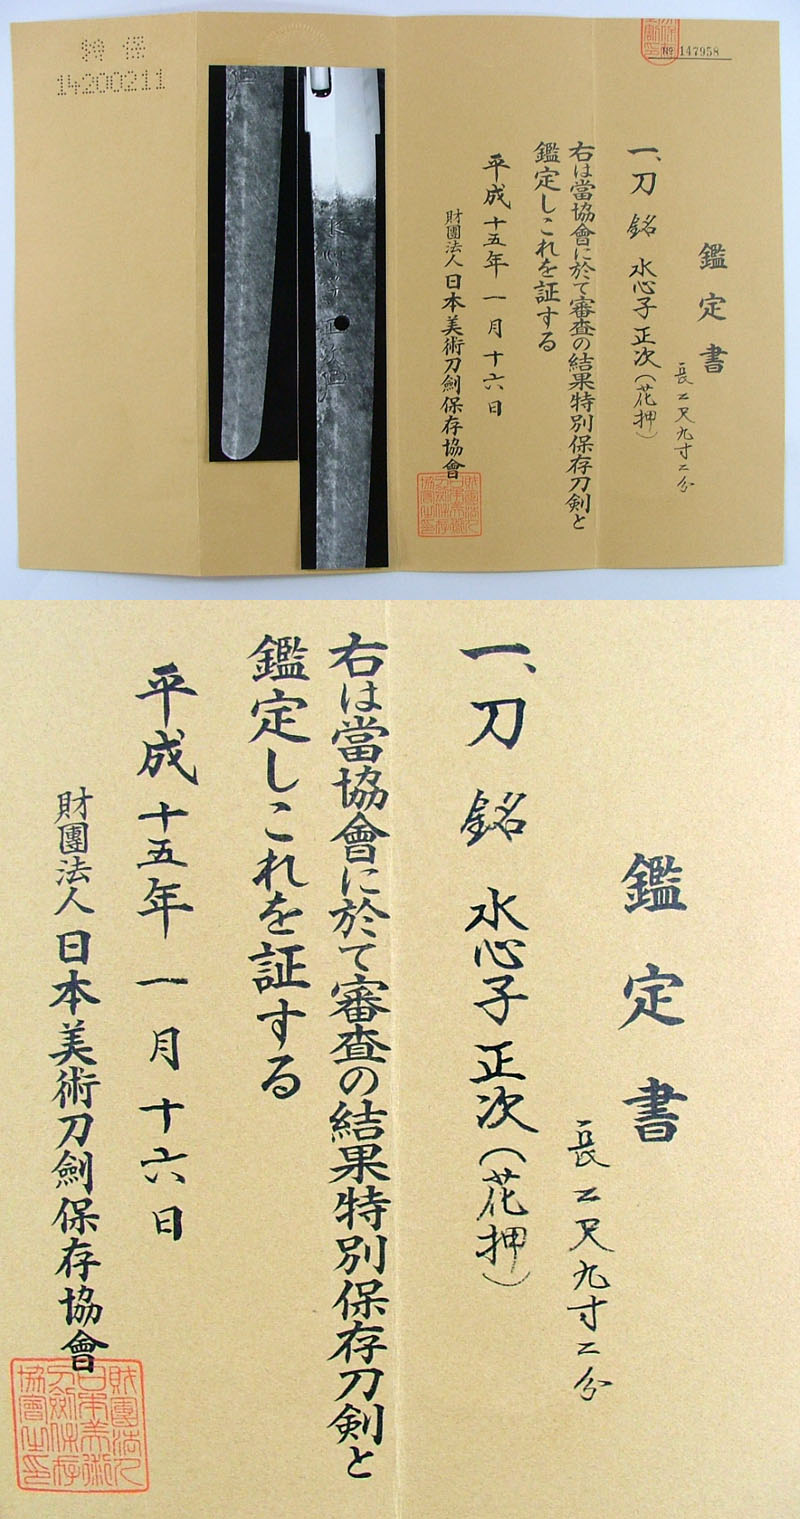 特保
14200211
№ 147958
鑑定書
長二尺九寸二分
一、刀 銘 水心子正次(花押)
右は當協會に於て審査の結果特別保存刀剣と
鑑定しこれを証する
平成十五年一月十六日
財團法人日本美術刀劍保存協會
水心子正次
鑑定書
長二尺九寸二分
一、刀 銘 水心子正次(花押)
右は當協會に於て審査の結果特別保存刀剣と
鑑定しこれを証する
平成十五年一月十六日
財團法人日本美術刀劍保存協會
財團法人
日本美術
刀劍保存
協會之印